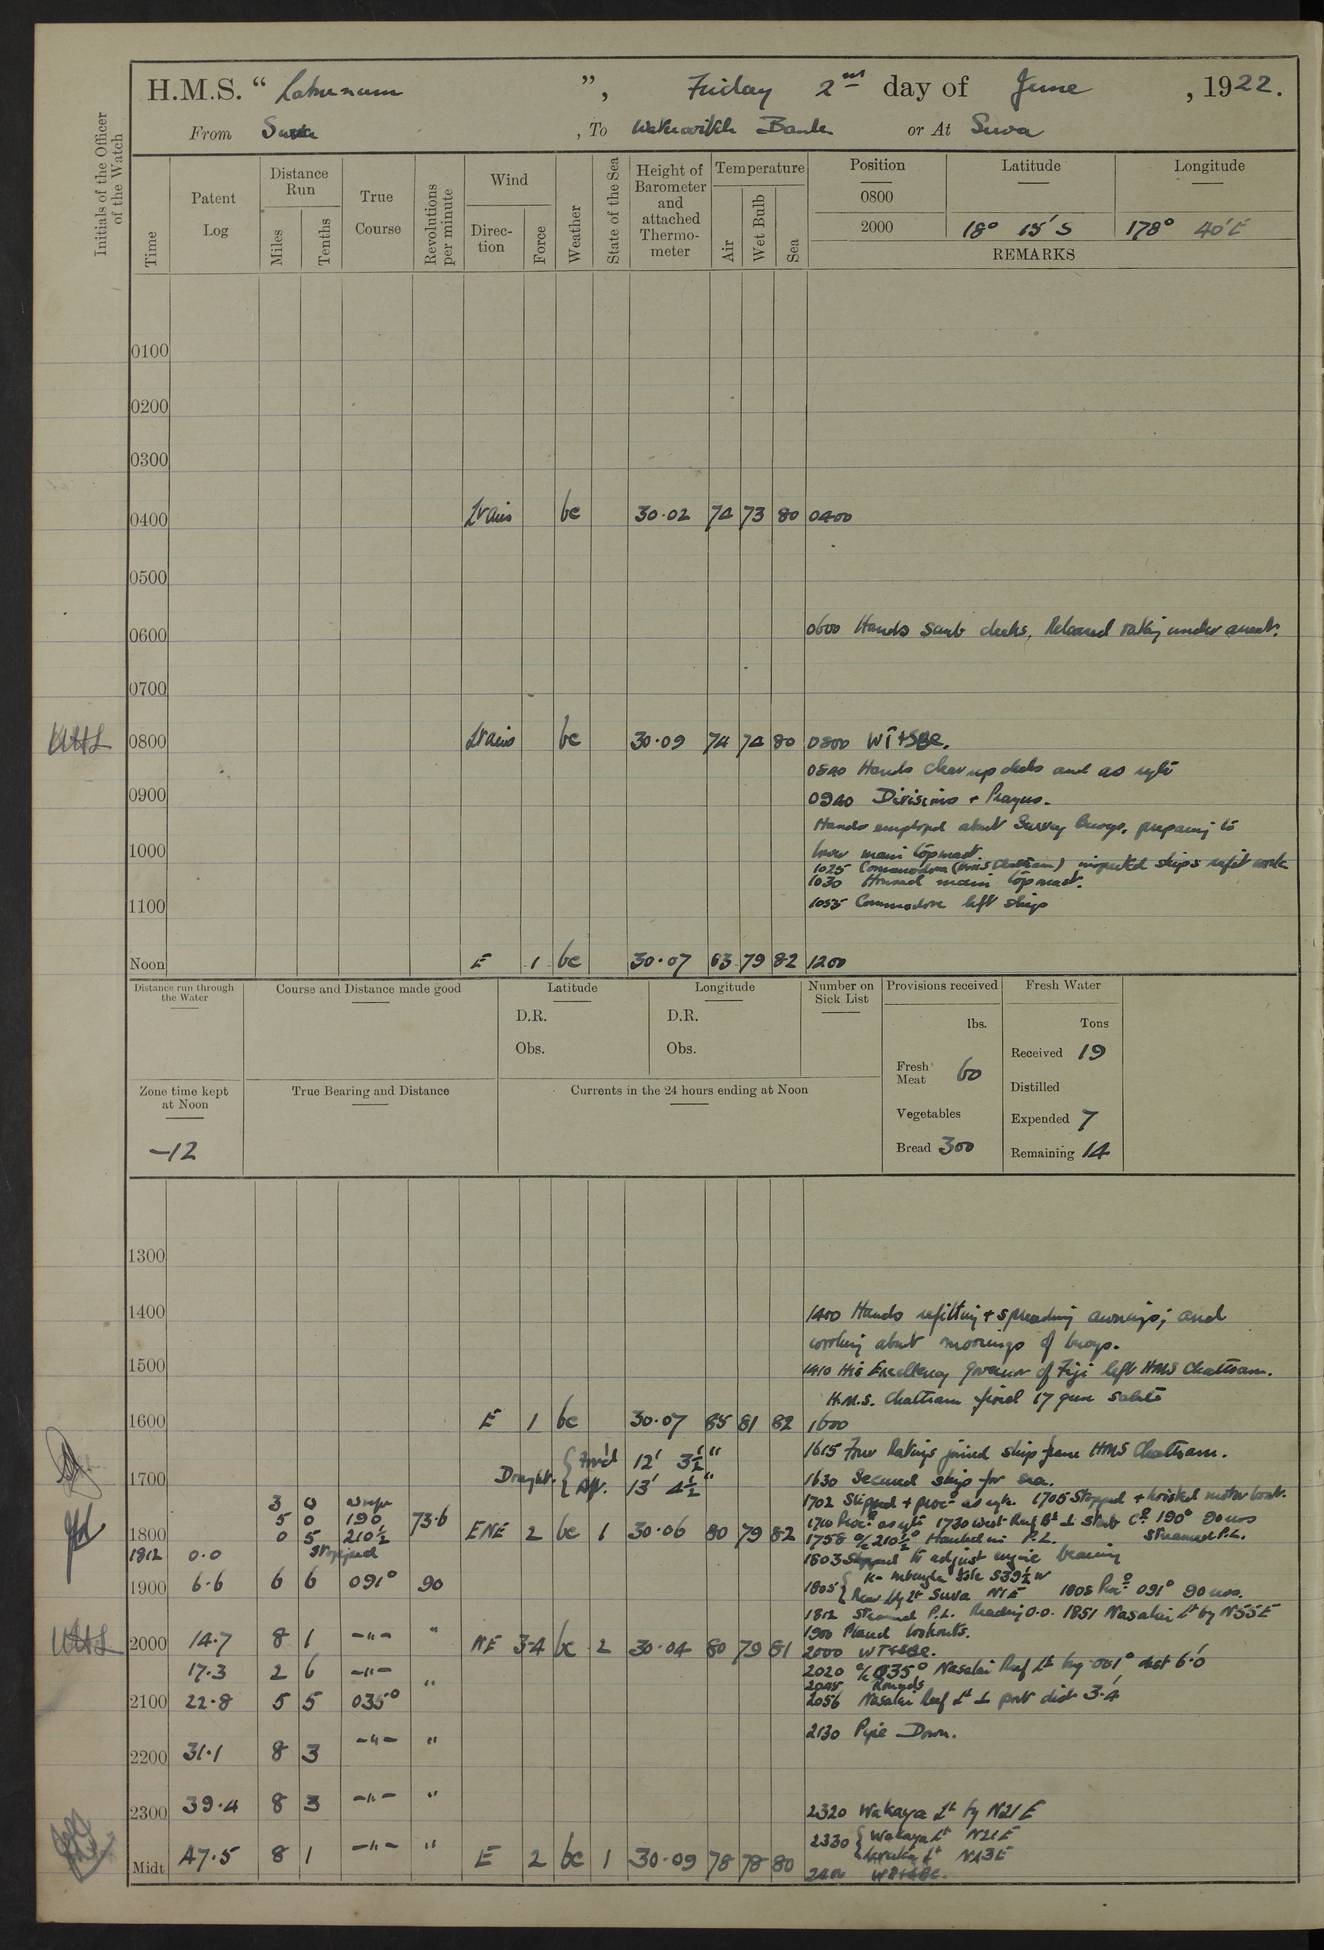 H.M.S. “ Laburnum ”, Friday 2nd day of June , 1922.
From Suva , To Bank or At Suva
Initials of the Officer of the Watch
Time
Patent Log
Distance Run
Miles
Tenths
True Course
Revolutions per minute
Wind
Direction
Force
Weather
State of the Sea
Height of Barometer and attached Thermometer
Temperature
Air
Wet Bulb
Sea
Position Latitude Longitude
0800
2000 18° 15' S 178° 40' E
REMARKS
0100
0200
0300
0400 Lt airs bc 30·02 74 73 80 0400
0500
0600 0600 Hands scrub decks. Released rating under arrest.
0700
0800 Lt airs bc 30·09 74 74 80 0800 WT+SBC.
0840 Hands clear up decks and as
0900 0940 Divisions + Prayers.
Hands employed about Survey buoys, preparing to
1000 lower main topmast
1025 Commodore (HMS Chatham) inspected ships refit work
1030 Housed main topmast.
1100 1055 Commodore left ship
Noon E 1 bc 30·07 83 79 82 1200
Distance run through the Water
Course and Distance made good
Latitude
D.R.
Obs.
Longitude
D.R.
Obs.
Number on Sick List
Provisions received
lbs.
Fresh Meat 60
Vegetables
Bread 300
Fresh Water
Tons
Received 19
Distilled
Expended 7
Remaining 14
Zone time kept at Noon
-12
True Bearing and Distance
Currents in the 24 hours ending at Noon
1300
1400 1400 Hands refitting + spreading awnings; and
working about moorings of buoys.
1500 1410 His Excellency Governor of Fiji left HMS Chatham.
H.M.S. Chatham fired 17 gun salute
1600 E 1 bc 30·07 85 81 82 1600
Draught. { For'd 12' 3½" 1615 Four Ratings joined ship from HMS Chatham.
1700 { Aft. 13' 4½" 1630 Secured ship for sea.
3 0 1702 Slipped + proc 1705 Stopped + hoisted motor boat.
5 0 190 73·6 1710 Proc 1730 West Reef Bn ⊥ Starb Co 190° 90 revs
1800 0 5 210½ ENE 2 bc 1 30·06 80 79 82 1758 a/c 210½° Hauled in P.L. Streamed P.L.
1812 0·0 Stopped 1803 Stopped to adjust engine bearing
1900 6·6 6 6 091° 90 1805 { S39½W
{ Rear Ldg Lt Suva N1E 1808 Proc 091° 90 revs.
1812 Streamed P.L. Reading 0.0. 1851 Nasalai Lt by N55E
1900 Placed lookouts.
2000 14·7 8 1 -"- " NE 3-4 bc 2 30·04 80 79 81 2000 WT+SBC.
17·3 2 6 -"- 2020 a/c 035° Nasalai Reef Lt by 001° dist 6·0'
" 2045 Rounds
2100 22·8 5 5 035° 2056 Nasalai Reef Lt ⊥ port dist 3·4'
2130 Pipe Down.
2200 31·1 8 3 -"- "
2300 39·4 8 3 -"- " 2320 Wakaya Lt by N21E
2330 { Wakaya Lt N21E
{ Lt N43E
Midt 47·5 8 1 -"- " E 2 bc 1 30·09 78 78 80 2400 WT+SBC.